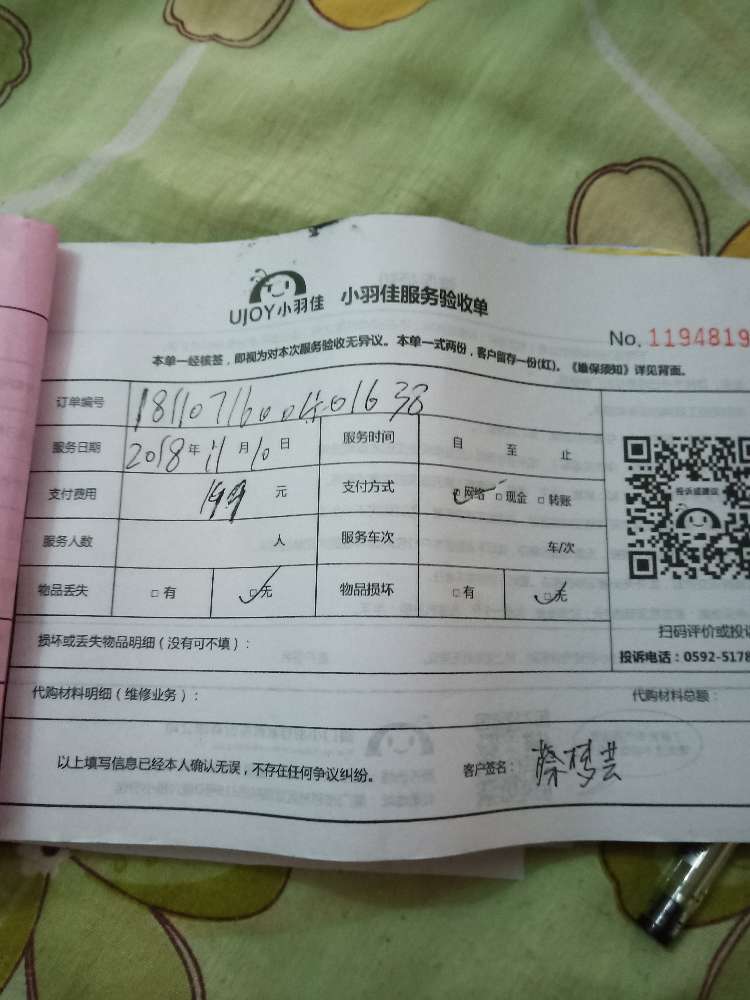 UJOY小羽佳 小羽佳服务验收单
No. 1194819
本单一经核签，即视为对本次服务验收无异议。本单一式两份，客户留存一份(红)。《维保须知》详见背面。
订单编号
服务日期 2018年11月10日 服务时间 自 至 止
支付费用 199 元 支付方式 □网络 □现金 □转账
投诉或建议
服务人数 人 服务车次 车/次
物品丢失 □有 □无 物品损坏 □有 □无
扫码评价或投诉
损坏或丢失物品明细（没有可不填）：
投诉电话：0592-5178
代购材料明细（维修业务）： 代购材料总额：
以上填写信息已经本人确认无误，不存在任何争议纠纷。 客户签名：蔡梦芸